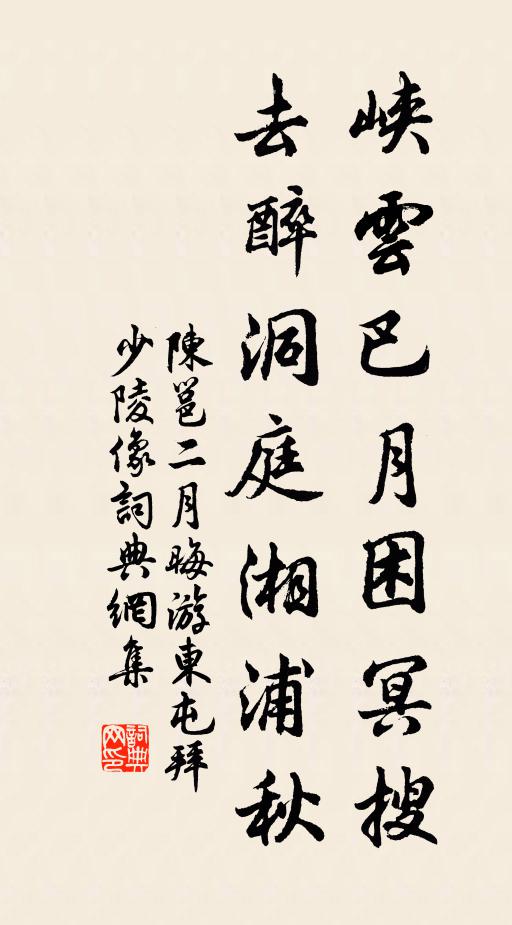 峽雲巴月困冥搜
去醉洞庭湘浦秋
陳邕二月晦游東屯拜
少陵像詞典網集
詞典网印